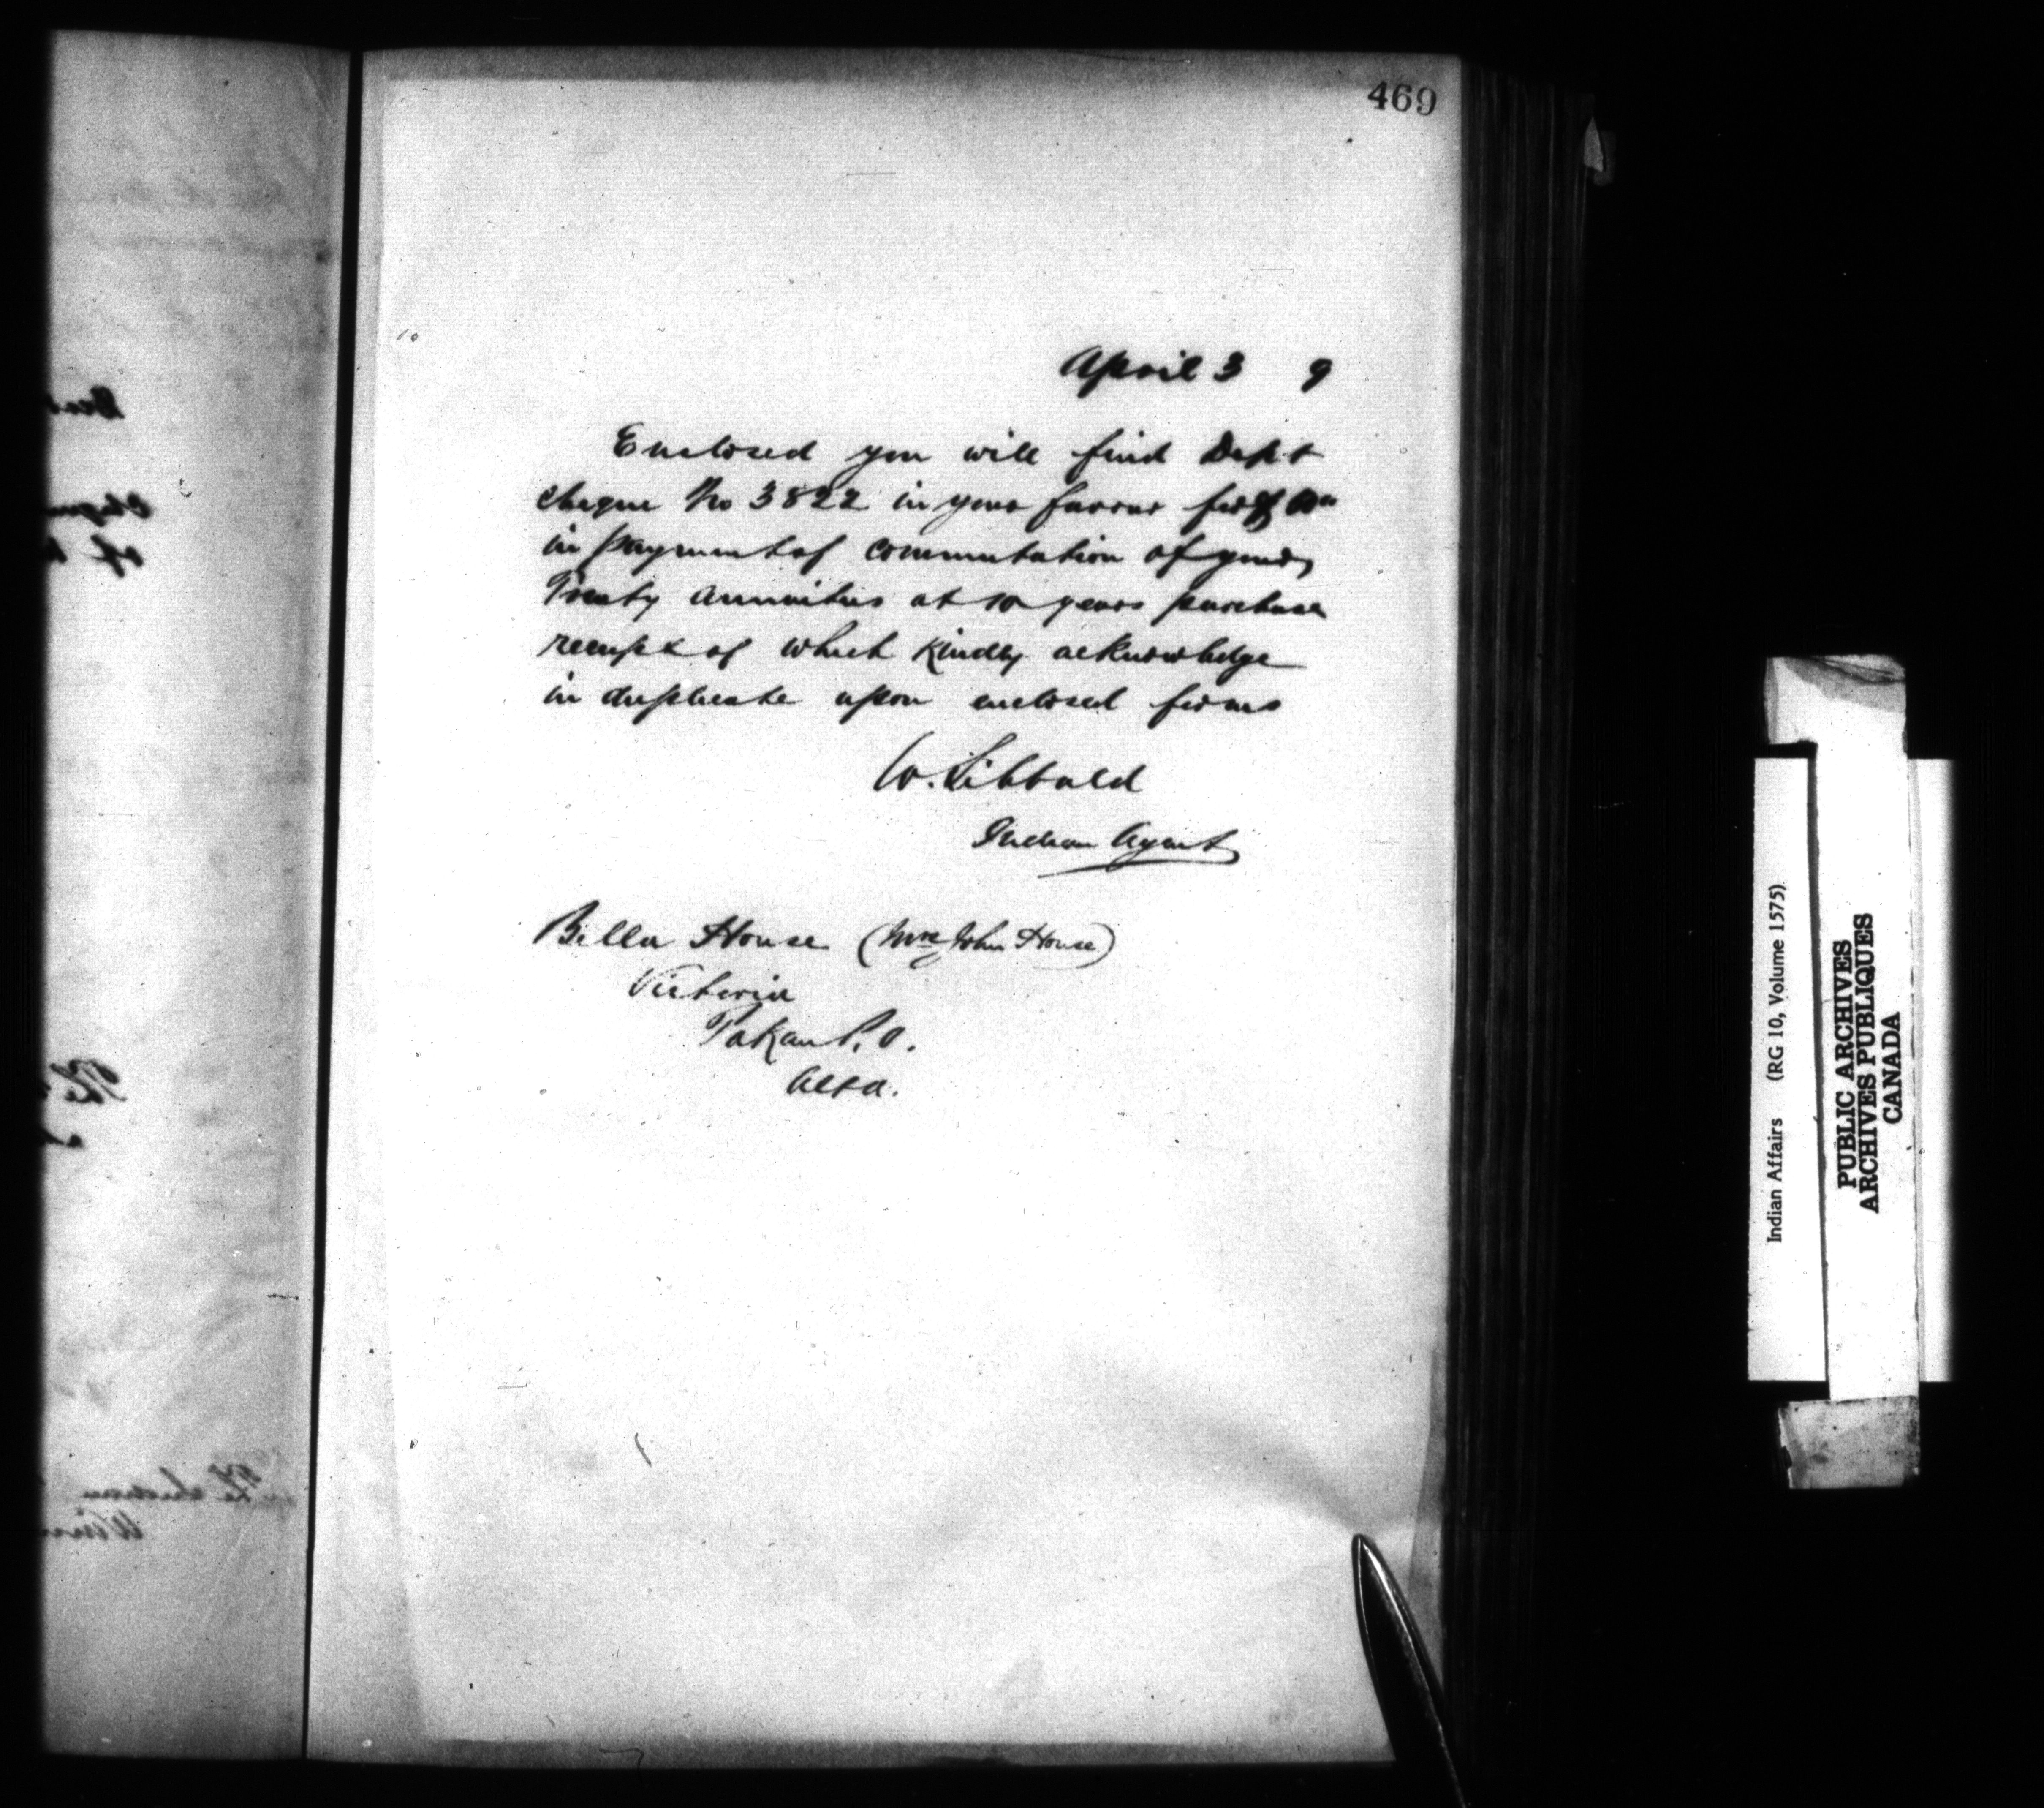 469
April 3 9
Enclosed you will find Dept
cheque No 3822 in your favour for
in payment of commutation of your
Treaty annuities at 10 years purchase
receipt of which kindly acknowledge
in duplicate upon enclosed forms
W. Sibbald
Indian Agent
Bella House (Mrs John House)
Victoria
Pakan P.O.
Alta.
Indian Affairs (RG 10, Volume 1575)
PUBLIC ARCHIVES
ARCHIVES PUBLIQUES
CANADA